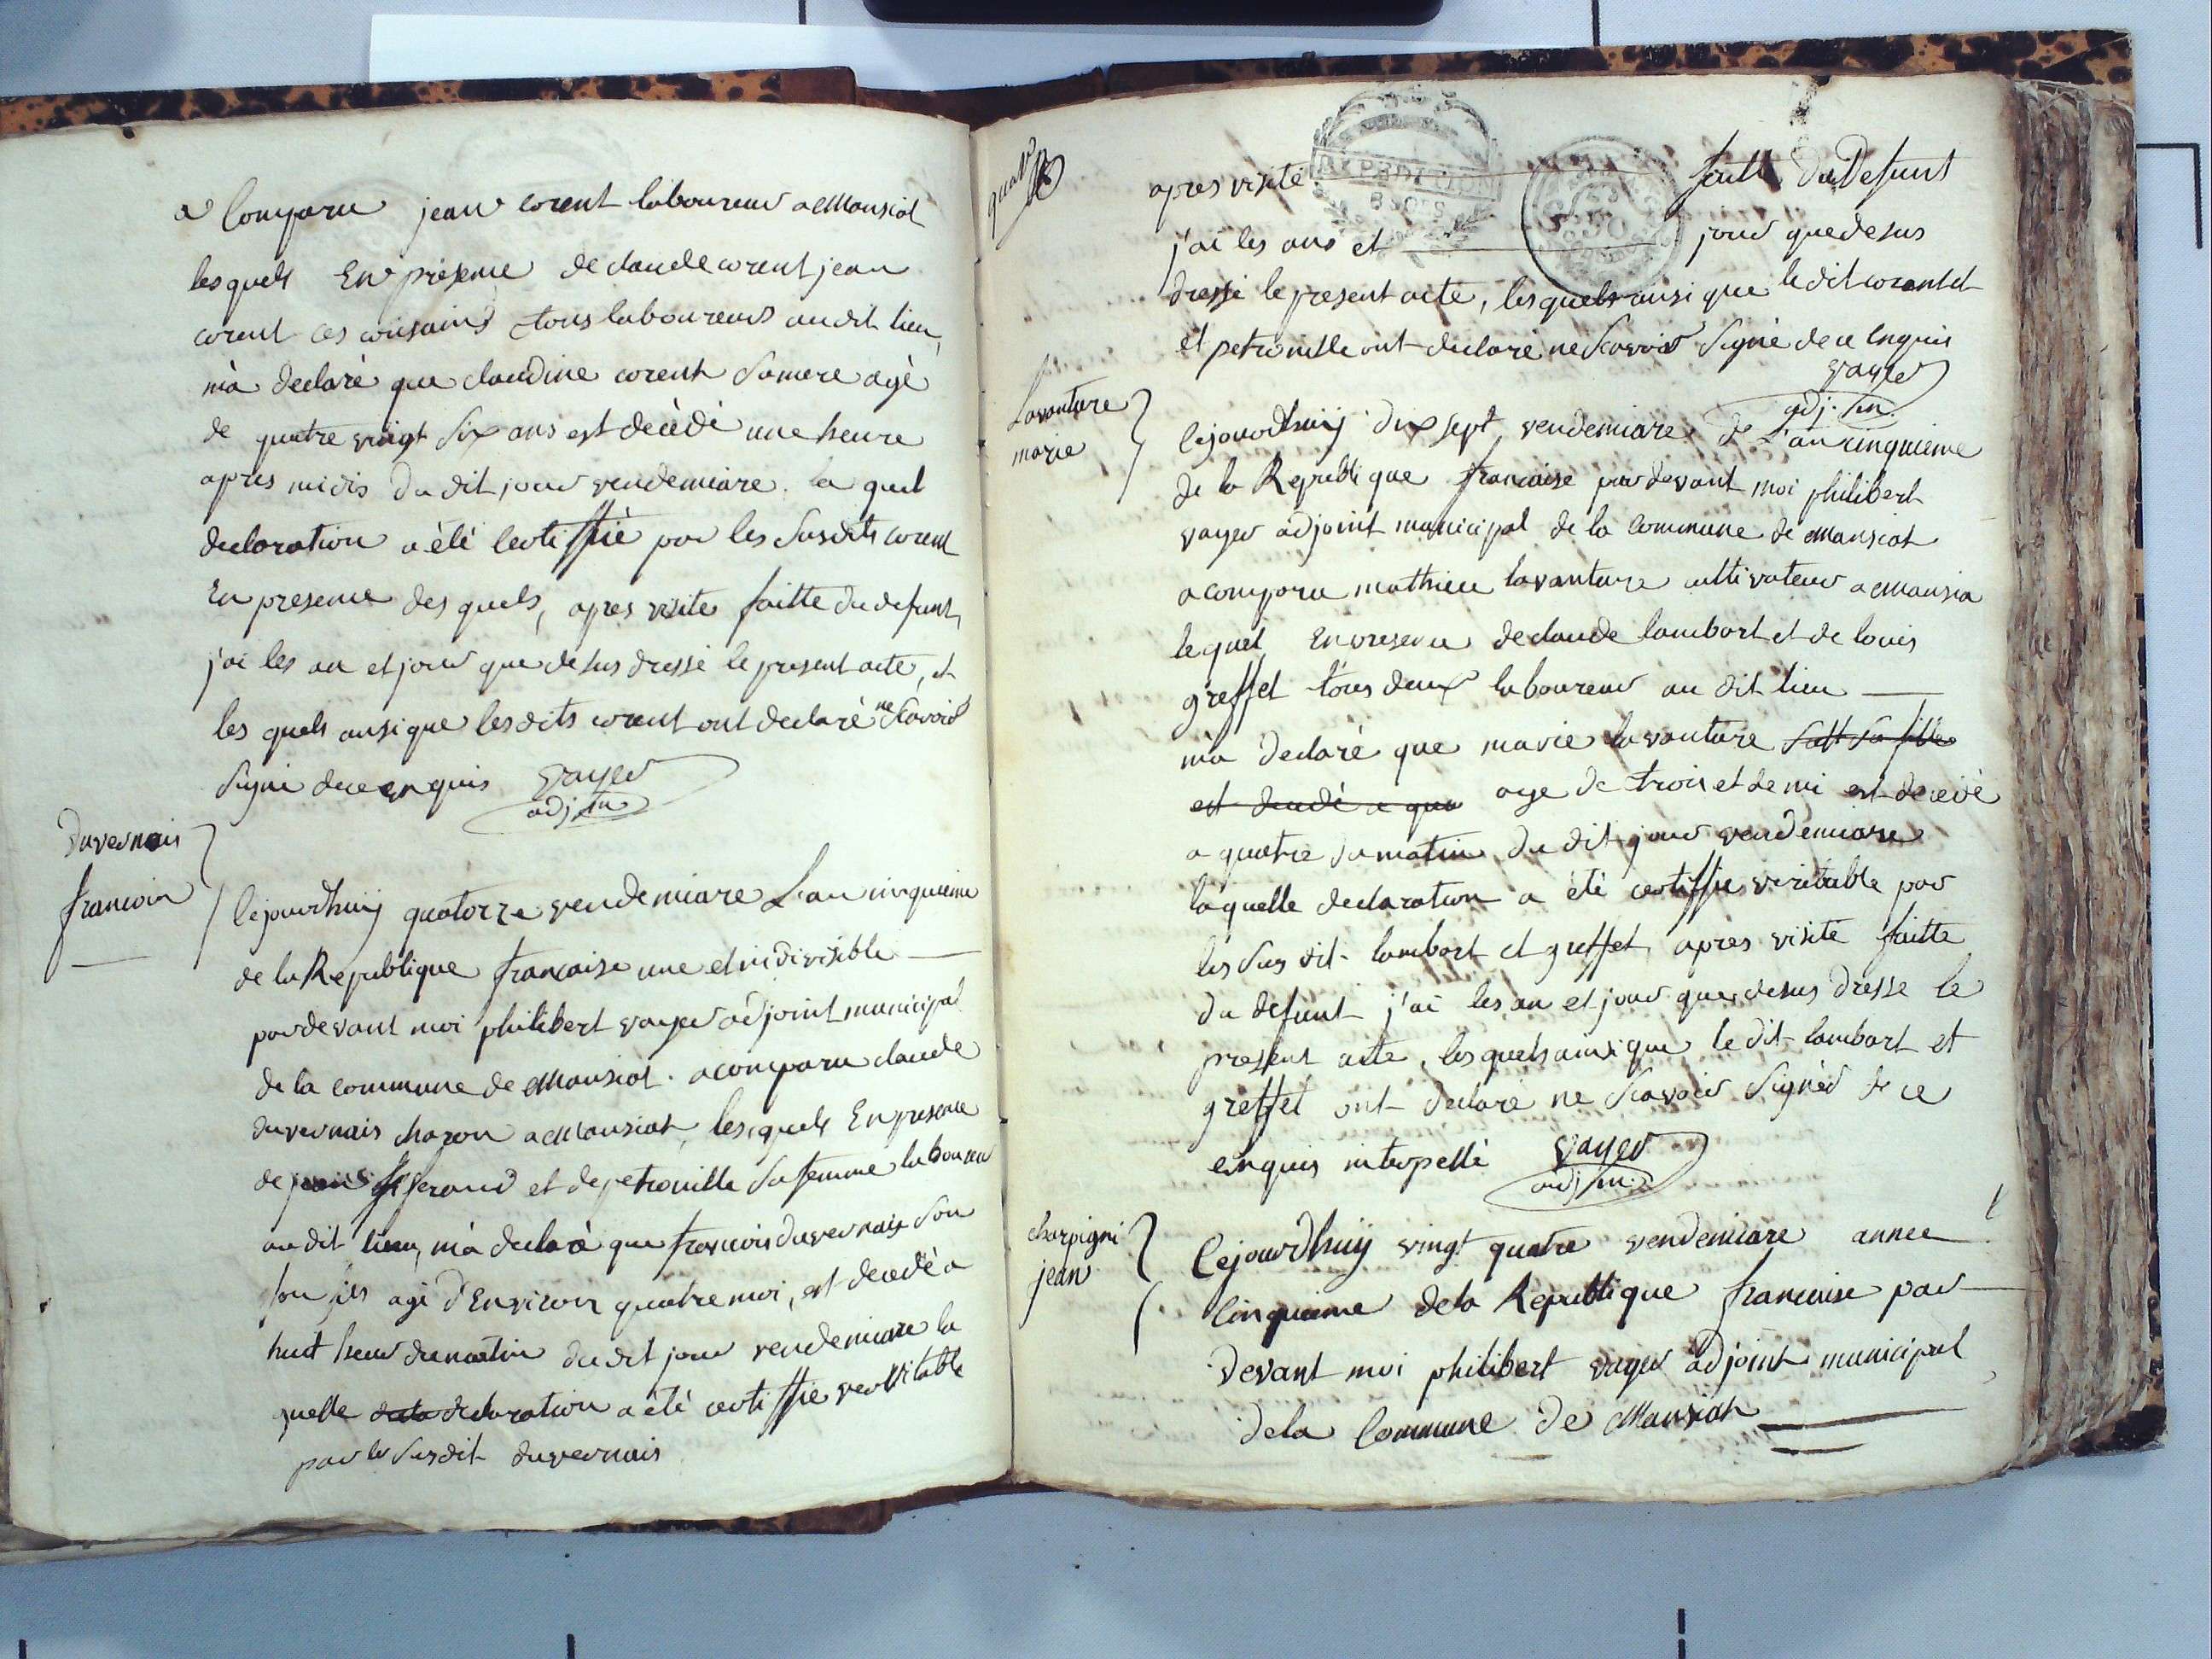 a Comparu jean corent laboureur a Mansiat
lesquels En présence de claude corent jean
corent ces cousains tous laboureurs au dit lieu,
m'a declaré que claudine corent sa mere agé
de quatre vingt six ans est décédé une heure
apres midis du dit jour vendemiare. la quel
declaration a été certiffié par les susdits corent
En presence des quels, apres visite faitte du defunt,
j'ai les an et jour que desus dressé le present acte, et
les quels ansi que les dits corent ont declaré ne scavoir
signé de ce enquis vayer
adj. m.
Duvernais
francoin
Cejourdhuij quatorze vendemiare L'an cinquieme
de la Republique francaise une et indivisible
pardevant moi philibert vayer adjoint municipal
de la commune de Mansiat. a comparu claude
duvernais charon a Mansiat, lesquels En presence
de feraud et de petronille sa femme laboureur
au dit lieu, m'a declaré que francois duvernais son
son fils agé d'Environ quatre moi, est decedé a
huit heur du matin du dit jour vendemiare la
quelle decla declaration a été certiffie veritable
par le susdit duvernais
apres visite faitte du Defunt
j'ai les ans et jour que desus
dressé le present acte, lesquels ainsi que le dit corent et
et petronille ont declaré ne scavoir signé de ce enquis
vayer
adj. m.
Lavanture
marie
Cejourdhuij dix sept vendemiare de L'an cinquieme
de la Republique francaise pardevant moi philibert
vayer adjoint municipal de la Commune de Mansiat
a comparu mathieu lavanture cultivateur a Mansia
lequel En presence de claude lambart et de louis
greffet tous deux laboureur au dit lieu
m'a declaré que marie lavanture sa fille
est decedé a qua age de trois et demi est decédé
a quatre du matin du dit jour vendemiare
laquelle declaration a été certiffie veritable par
les sus dit lambart et greffet apres visite faitte
du defunt j'ai les an et jour que desus dresse le
present acte, les quels ainsi que le dit lambart et
greffet ont declaré ne scavoir signér de ce
enquis interpellé vayer
adj. m.
charpigni
jean
Cejourdhuij vingt quatre vendemiare annee
Cinquieme de la Republique francaise par
devant moi philibert vayer adjoint municipal
de la Commune de Mansiat